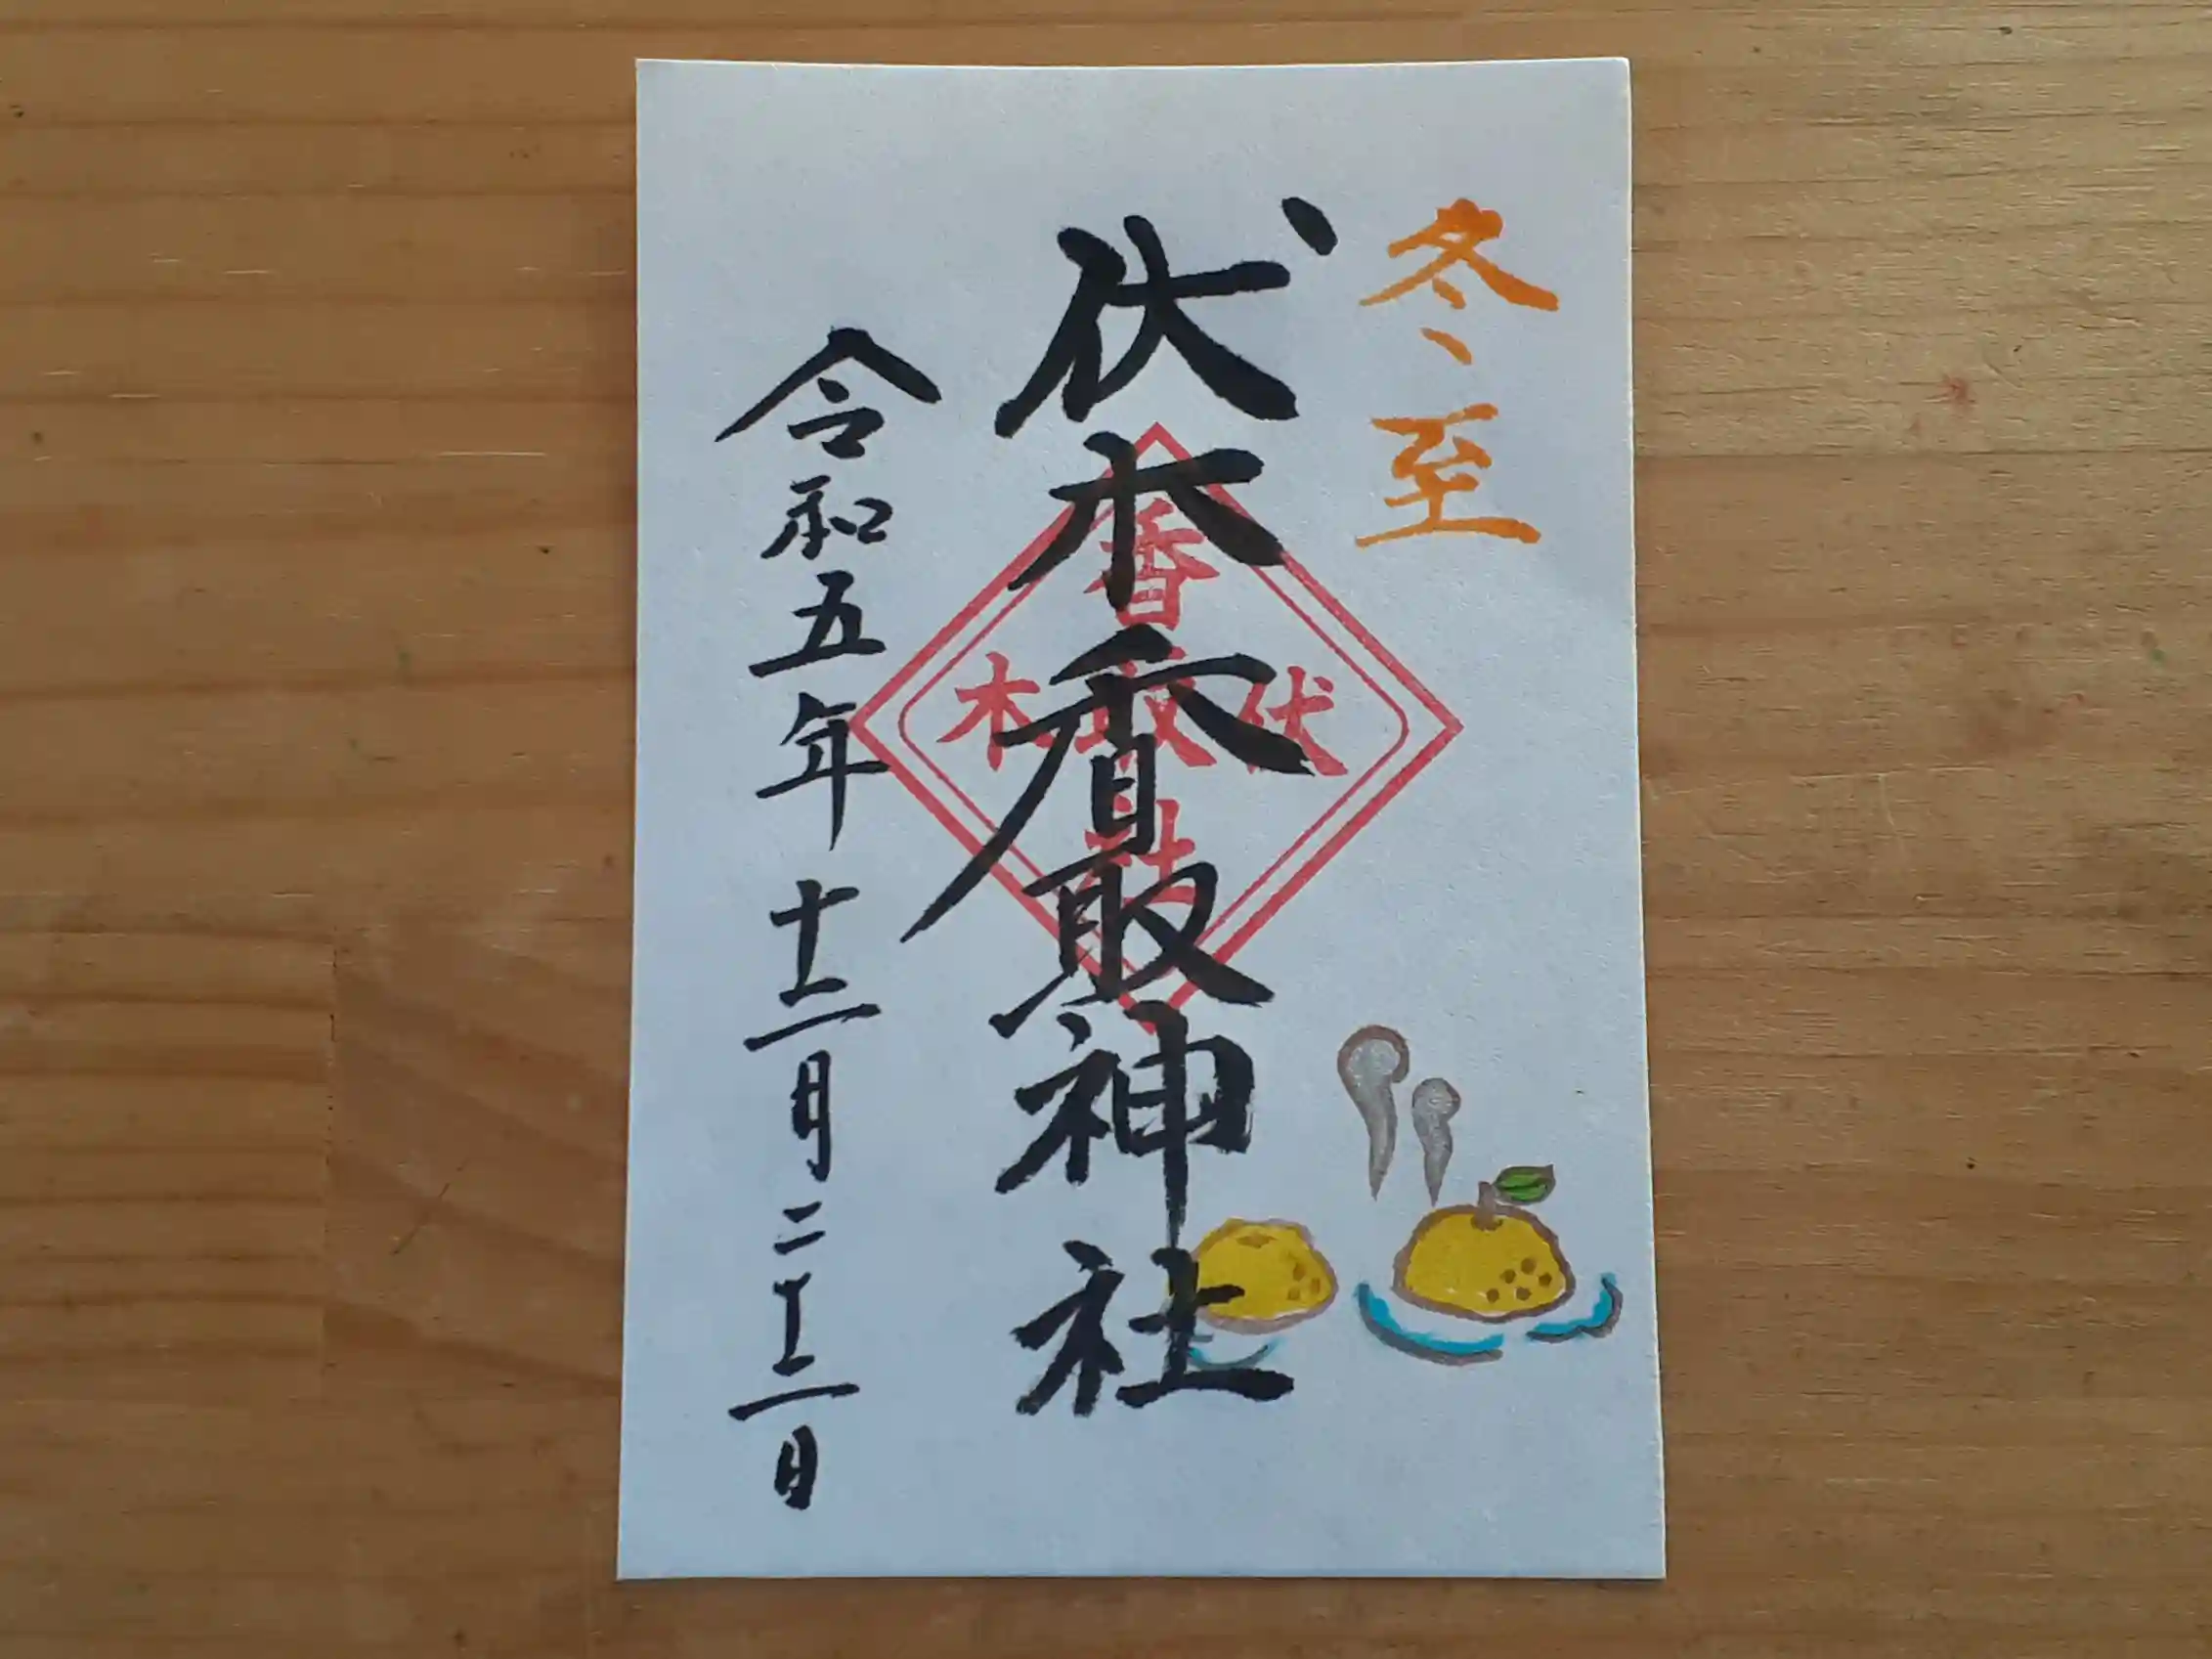 冬至
伏木香取神社
伏木香取社
令和五年十二月二十二日